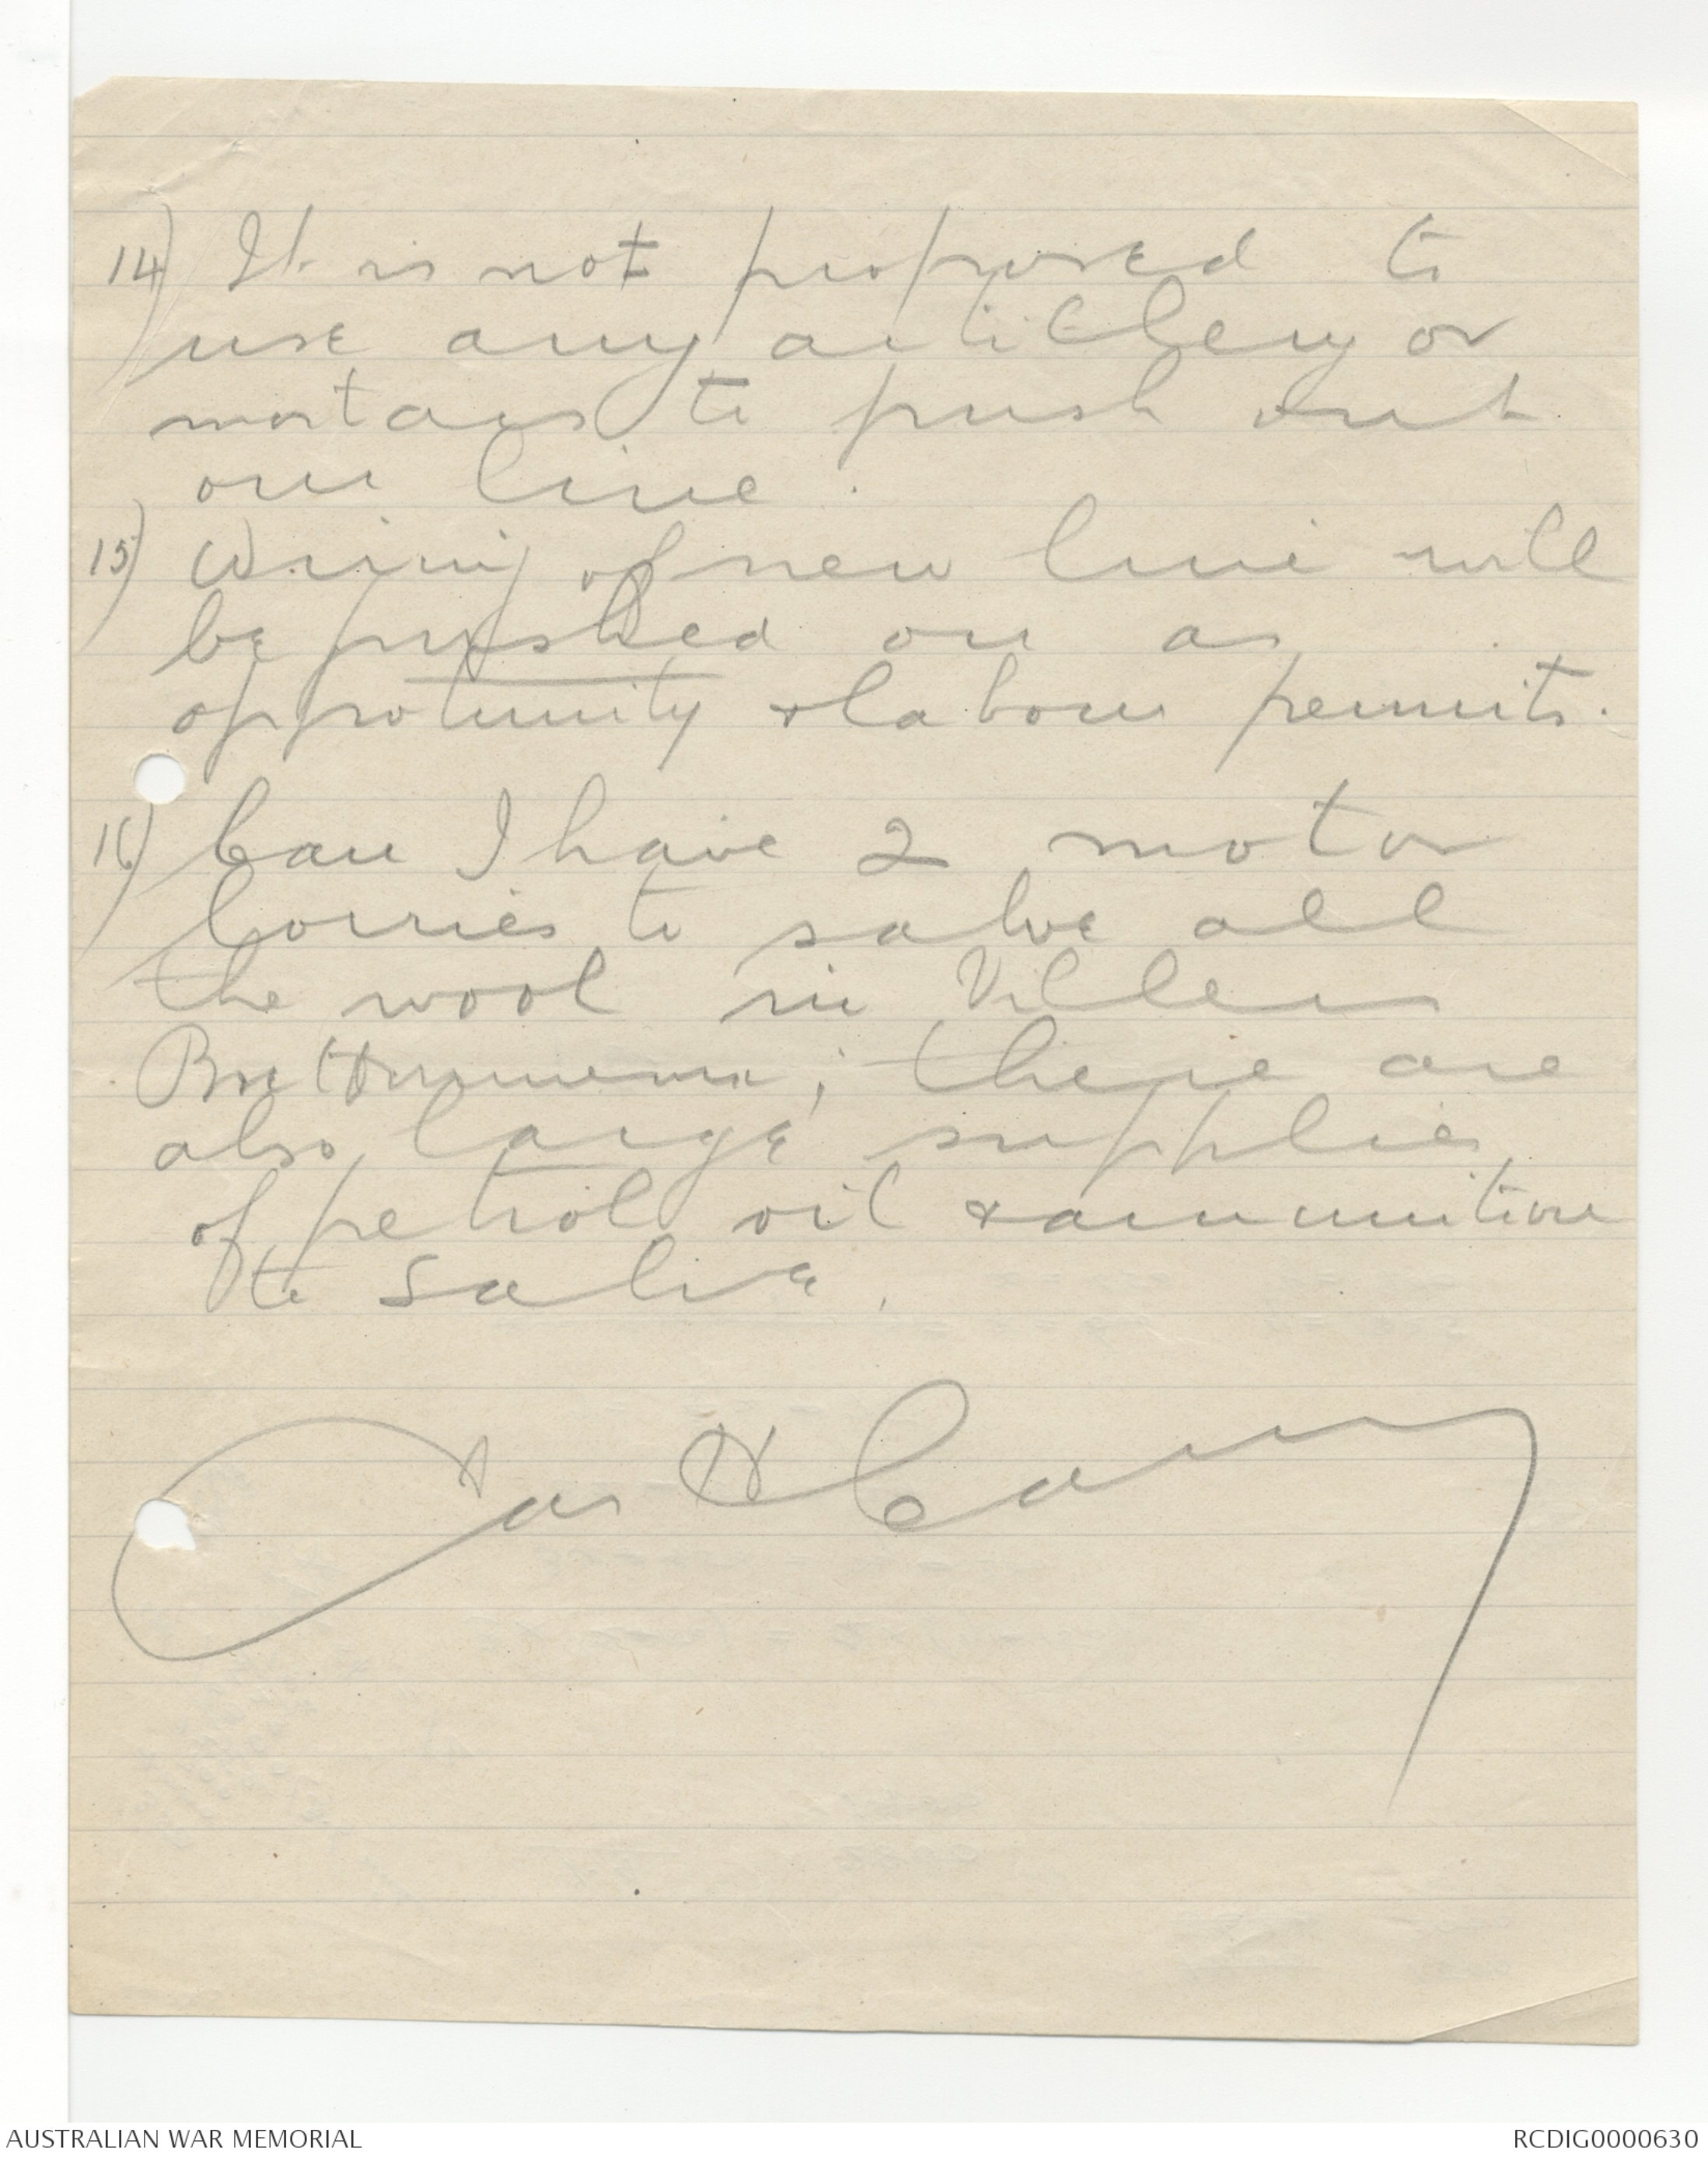 14) It is not proposed to
use any artillery or
mortars to push out
our line.
15) Wiring of new line will
be pushed on as
opportunity & labour permits.
16) Can I have 2 motor
lorries to salve all
the wool in Villers
Brettonneux; there are
also large supplies
of petrol oil & ammunition
to salve.
Jas H Cannan
AUSTRALIAN WAR MEMORIAL
RCDIG0000630